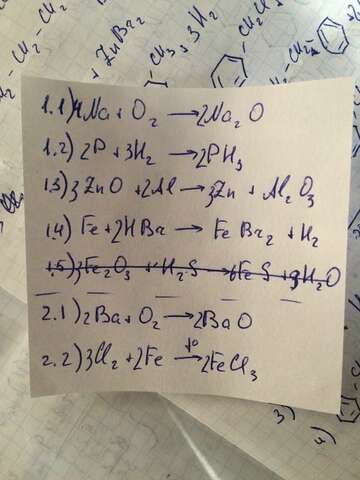 CH₂-CH₂
+ ZnBr₂
CH₃ + 3H₂
1.1) 4Na + O₂ → 2Na₂O
1.2) 2P + 3H₂ → 2PH₃
1.3) 3ZnO + 2Al → 3Zn + Al₂O₃
1.4) Fe + 2HBa → FeBa₂ + H₂
1.5) 3Fe₂O₃ + H₂S → 6FeS + 9H₂O
2.1) 2Ba + O₂ → 2BaO
2.2) 3Cl₂ + 2Fe –t°→ 2FeCl₃
3)
4)